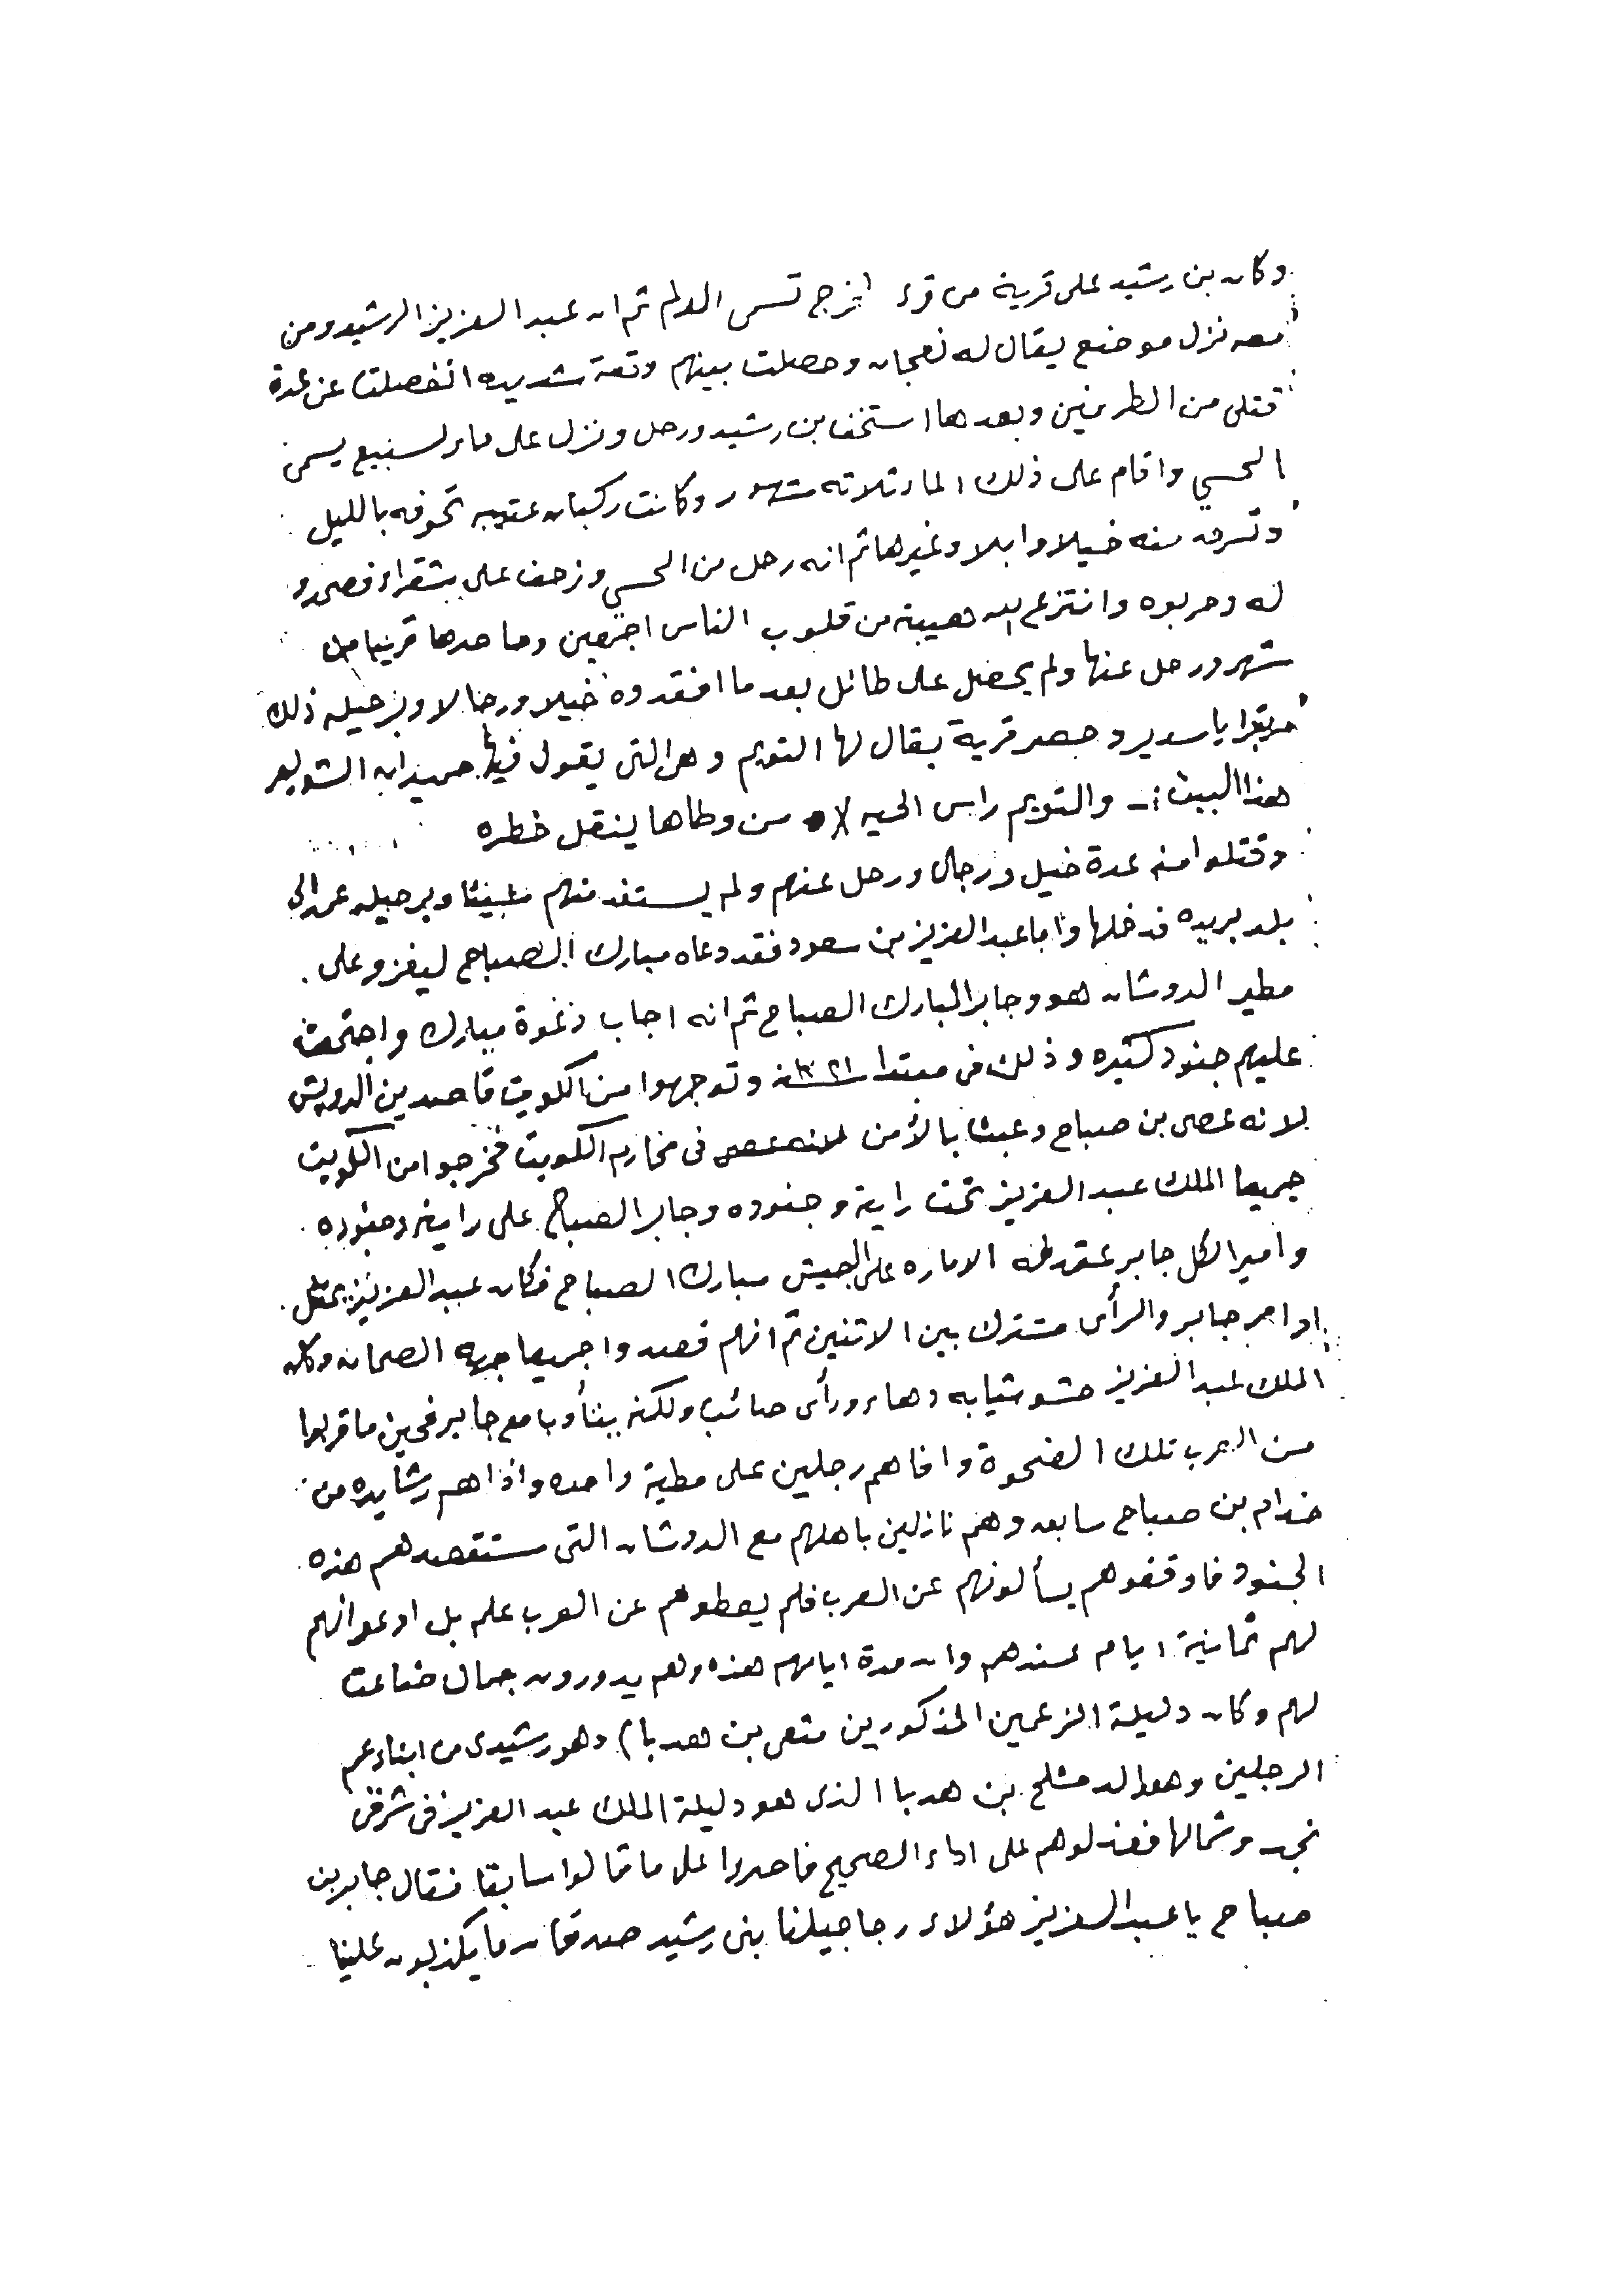 وكان بن رشيد على قرية من قرء الخرج تسمى الدلم ثم ان عبد العزيز الرشيد ومن
معه نزل موضع يقال له نعجان وحصلت بينهم وقعة شديده انفصلت عن عدة
قتلى من الطرفين وبعدها استخف بن رشيد ورحل ونزل على ماء لسبيع يسمى
الحسي واقام على ذلك الماء ثلاثه شهور وكانت ركبان عتيبه تخوفه بالليل
وتسرق منه خيلا وابلا وغيرها ثم انه رحل من الحسي وزحف على شقراء فصمدو
له وحربوه وانتزع الله هيبته من قلوب الناس اجمعين وحاصرها قريبا من
شهر ورحل عنها ولم يحصل على طائل بعد ما افقدوه خيلا ورجالا وبرحيله ذلك
مر بقرايا سدير وحصر قرية يقال لها التويم وهى التى يقول فيها حميدان الشويعر
هذا البيت :- والتويم راس الحيه من وطاها ينقل خطره
وقتلوا منه عدة خيل ورجال ورحل عنهم ولم يستفد منهم شيئا وبرحيله عمد الى
بلد بريده فدخلها واما عبد العزيز بن سعود فقد دعاه مبارك الصباح ليغزو على
مطير الدوشان هو وجابر المبارك الصباح ثم انه اجاب دعوة مبارك واجتمعت
عليهم جنود كثيره وذلك فى مبتدا سنة ١٣٢١ وتوجهوا من الكويت قاصدين الدويش
لانه عصى بن صباح وعبث بالأمن لانه عصى فى محارم الكويت فخرجوا من الكويت
جميعا الملك عبد العزيز تحت راية وجنوده وجابر الصباح على رايته وجنوده
وامير الكل جابر عقد له الاماره على الجيش مبارك الصباح فكان عبد العزيز يمتثل
اوامر جابر والرأى مشترك بين الاثنين ثم انهم قصدوا جميعا جهه الصمان وكان
الملك عبد العزيز حشو ثيابه دهاء ورأى صائب ولكنه يتأدب مع جابر فحين ما قربوا
من العرب تلك الضحوة وافاهم رجلين على مطية واحده واذا هم رشايده من
خدام بن صباح سابق وهم نازلين باهلهم مع الدوشان التى ستقصدهم هذه
الجنود فاوقفوهم يسألونهم عن العرب فلم يعطوهم عن العرب علم بل ادعوا انهم
لهم ثمانية ايام عندهم وان مدة ايامهم هذه وهم يدورون جمال ضاعت
لهم وكان دليلة الزعمين المذكورين متعى بن هدبا) وهو رشيدى من ابناء عم
الرجلين وهو والد مشلح بن هدبا الذى هو دليلة الملك عبد العزيز فى شرقى
نجد وشمالها فعذلوهم على اداء الصحيح فاصروا على ما قالوا سابقا فقال جابر بن
صباح يا عبد العزيز هؤلاء رجاجيلنا بنى رشيد صدقان ما يكذبون علينا